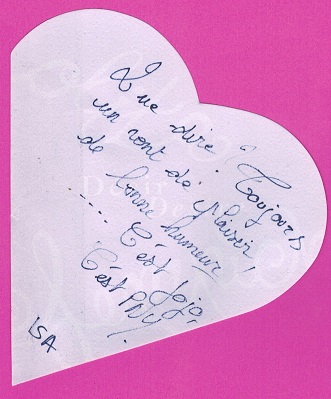 Que dire ? Toujours
un vent de plaisir !
de bonne humeur
.... C'est Jojo,
C'est PMU.
ISA